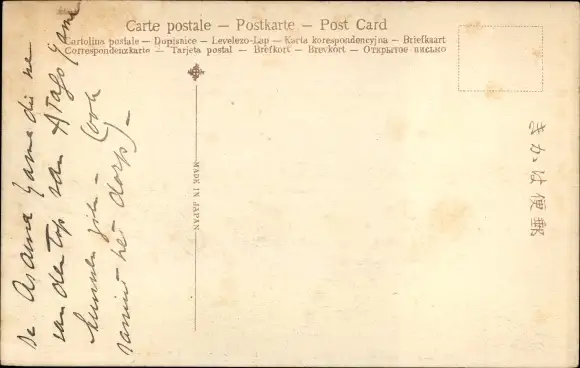 Carte postale — Postkarte — Post Card
Cartolina postale — Dopisnice — Levelezo-Lap — Karta korespondencyjna — Briefkaart
Correspondenzkarte — Tarjeta postal — Brefkort — Brevkort — Открытое письмо
MADE IN JAPAN
きかは便郵
De Asama Yama die we
van den top van Atago Yama
kunnen zien — Ook
vanuit het dorp —